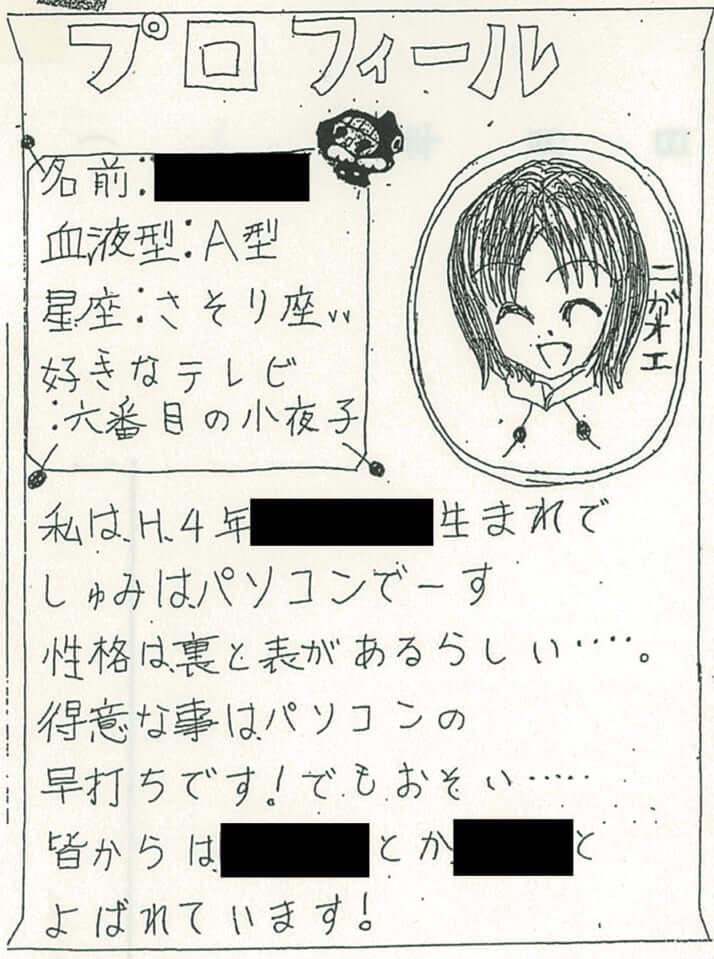 プロフィール
名前:
血液型:A型
星座:さそり座、、
好きなテレビ
:六番目の小夜子
ニガオエ
私は、H、4年 生まれで
しゅみはパソコンでーす
性格は裏と表があるらしい‥‥。
得意な事はパソコンの
早打ちです!でもおそい‥‥‥
皆からは とか と
よばれています!